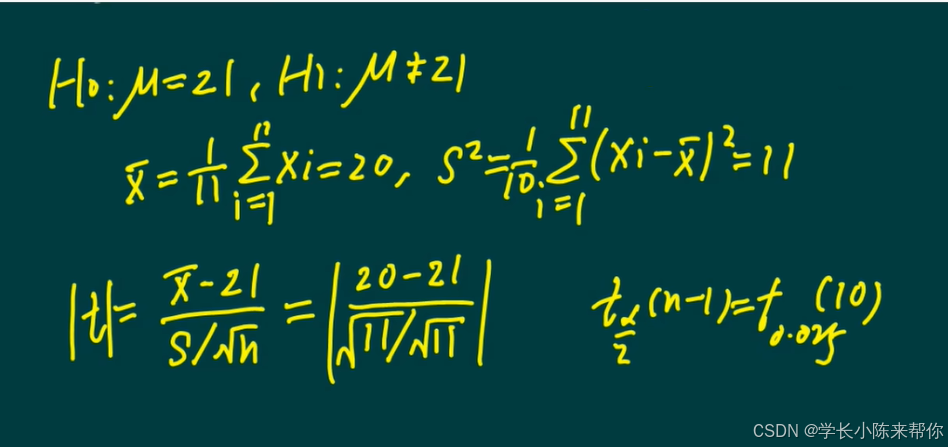 H₀: μ=21, H₁: μ≠21
x̄ = 1/11 ∑_{i=1}^{11} xi = 20, S² = 1/10 · ∑_{i=1}^{11} (xi - x̄)² = 11
|t| = (x̄ - 21)/(S/√n) = |(20-21)/(√11/√11)| t_{α/2}(n-1) = t_{0.025}(10)
CSDN @学长小陈来帮你